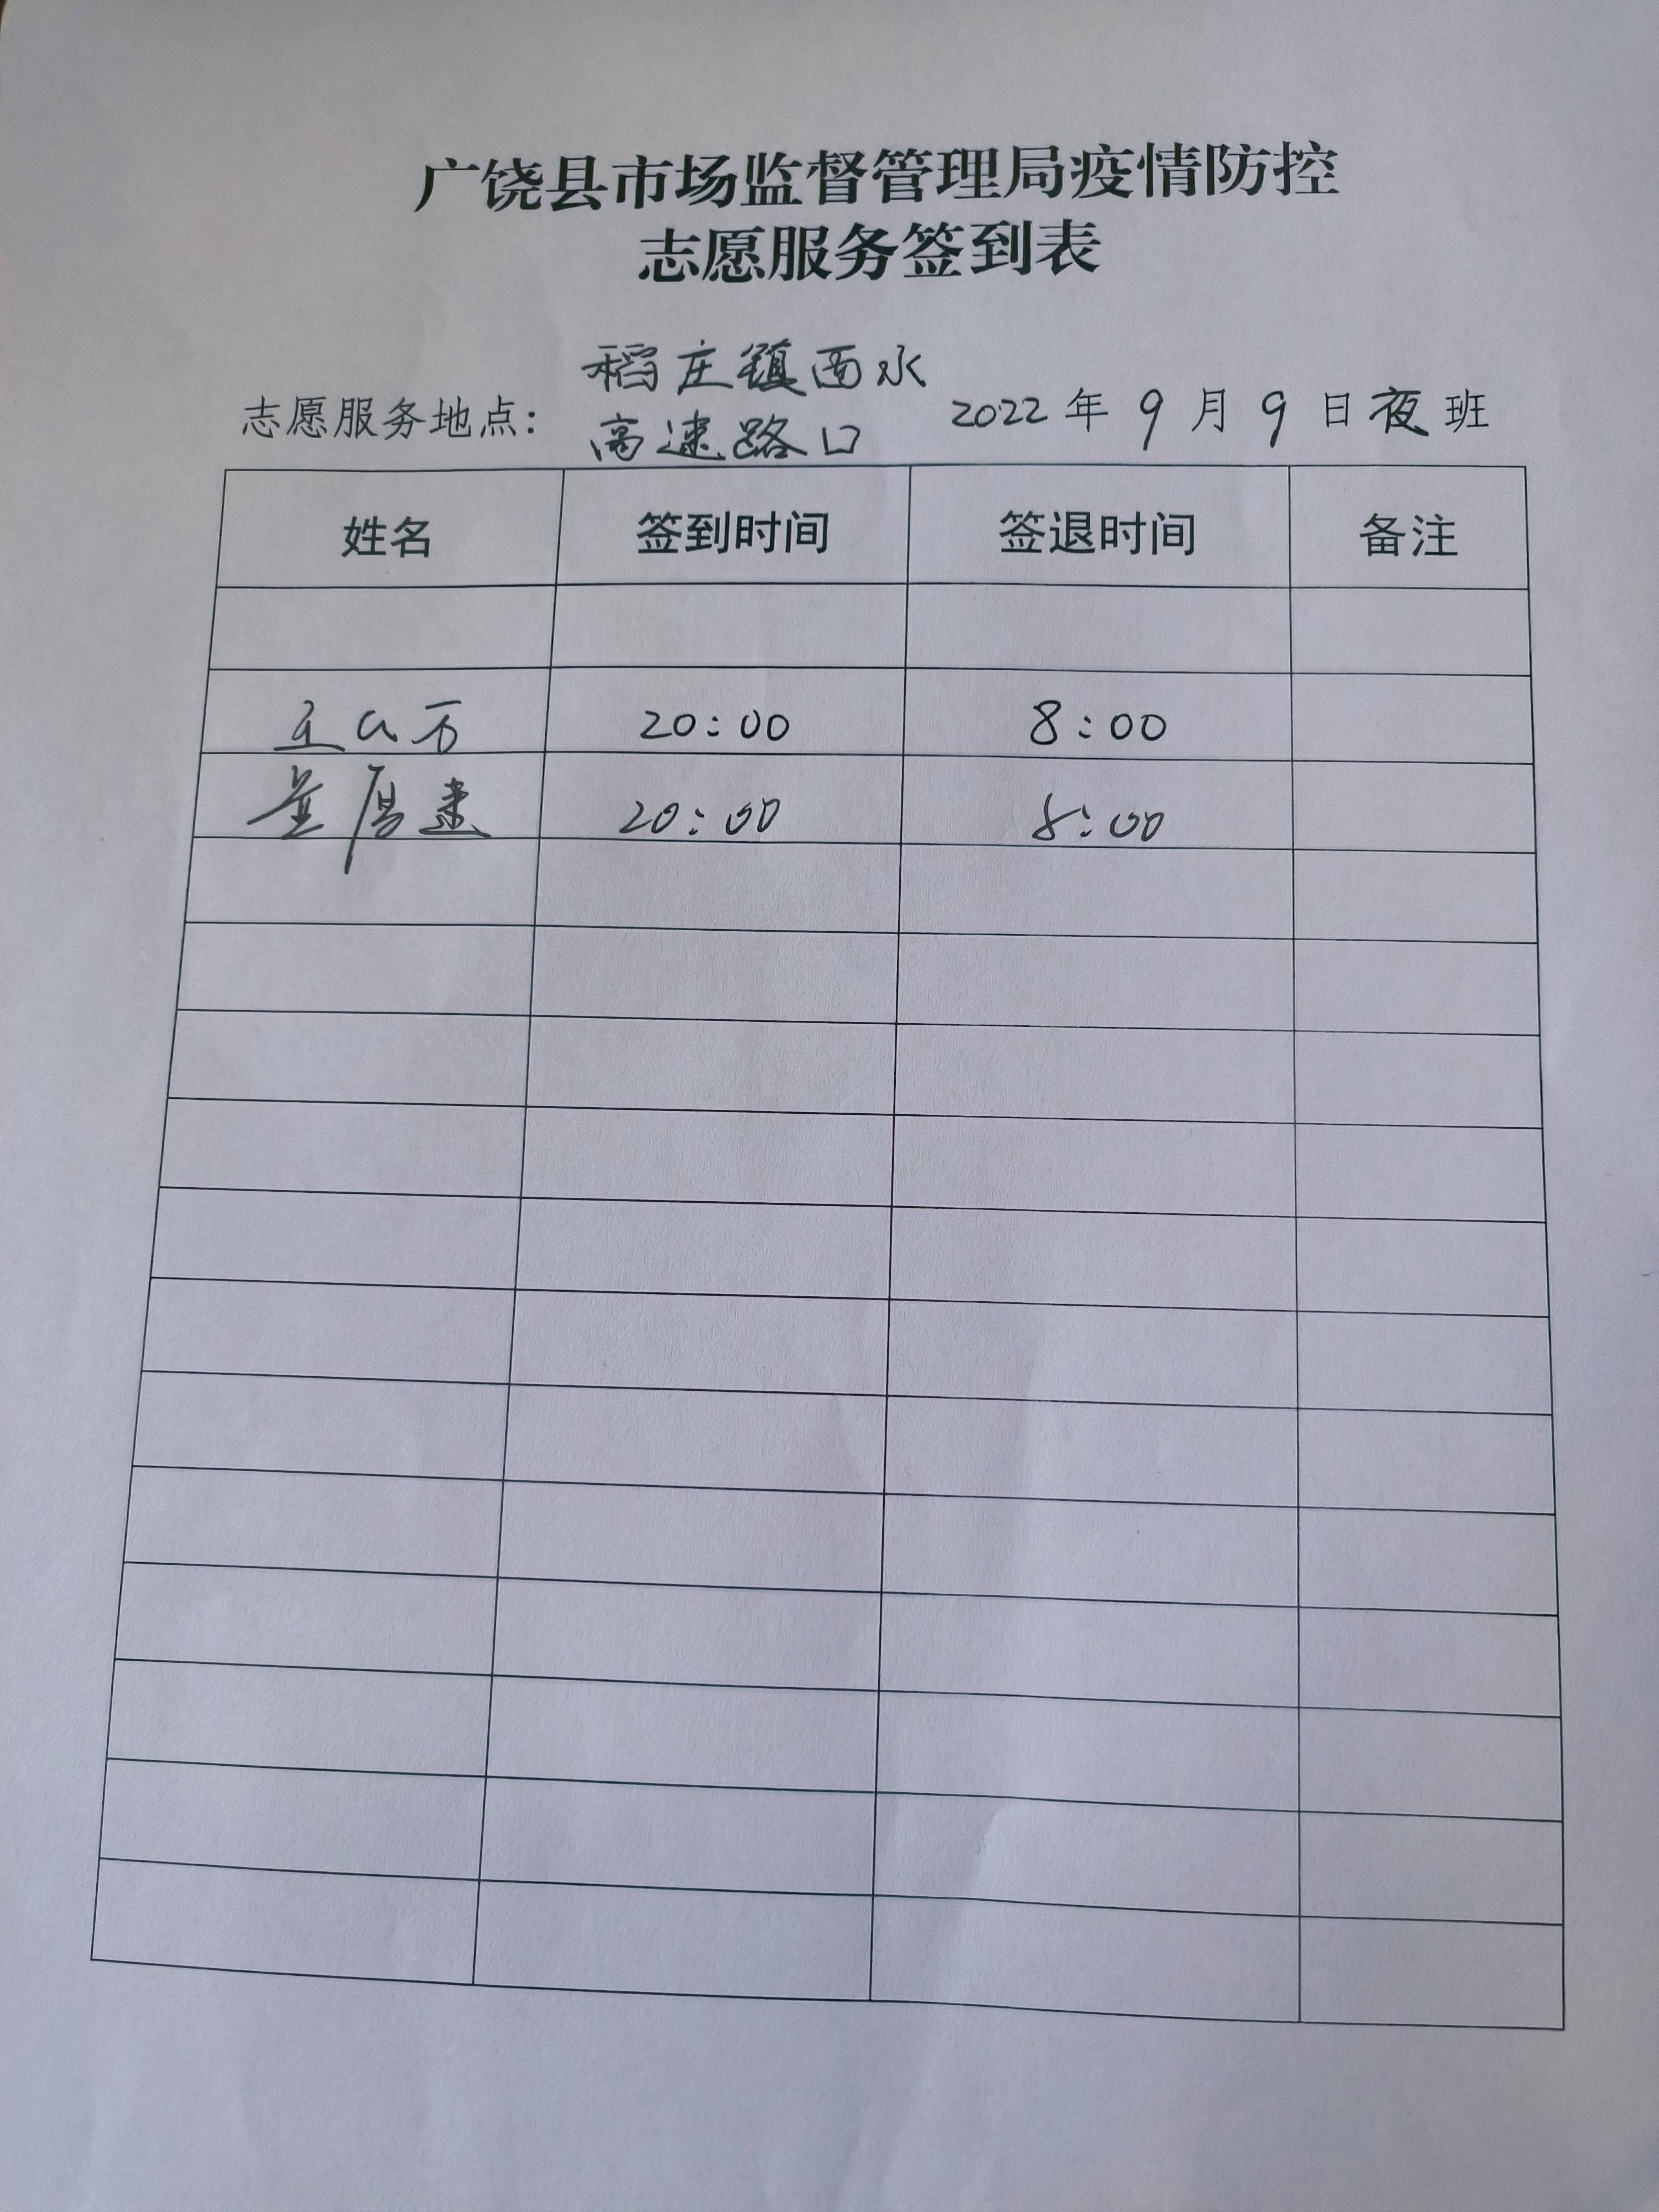 广饶县市场监督管理局疫情防控
志愿服务签到表
稻庄镇西水
志愿服务地点： 高速路口 2022年9月9日夜班
姓名 签到时间 签退时间 备注
20:00 8:00
20:00 8:00